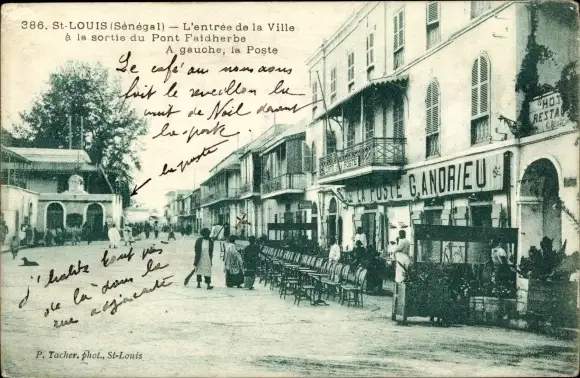 386. St-LOUIS (Sénégal) — L'entrée de la Ville
à la sortie du Pont Faidherbe
A gauche, la Poste
Le café ou nous avons
fait le reveillon la
nuit de Noël devant
la porte
la poste
HOT
RESTA
LA POSTE G. ANDRIEU &
J'habite tout près
de là dans la
rue adjacente
P. Tacher, phot., St-Louis